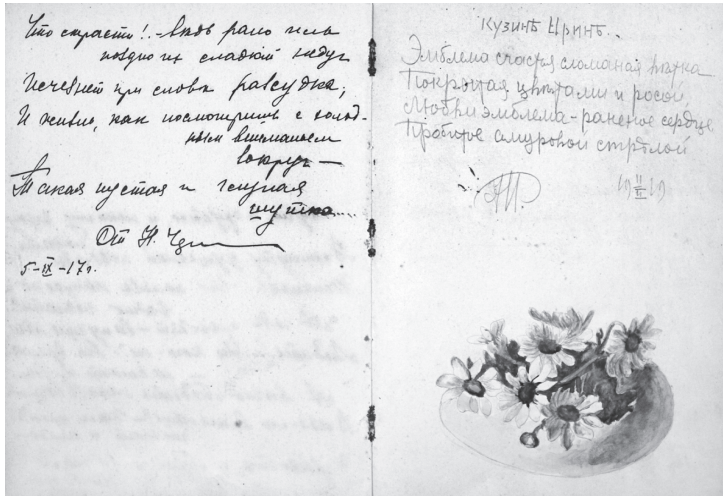 Что страсти!.– ведь рано иль
поздно их сладкий недуг
Исчезнет при слове рассудка;
И жизнь, как посмотришь с холод-
ным вниманьем
вокруг —
Такая пустая и глупая
шутка...
От Н.
5-IX-17г.
Кузинѣ Иринѣ..
Эмблема счастья сломаная вѣтка
Покрытая цвѣтами и росой,
Любви эмблема - раненое сердце
Пробитое амуровой стрѣлой